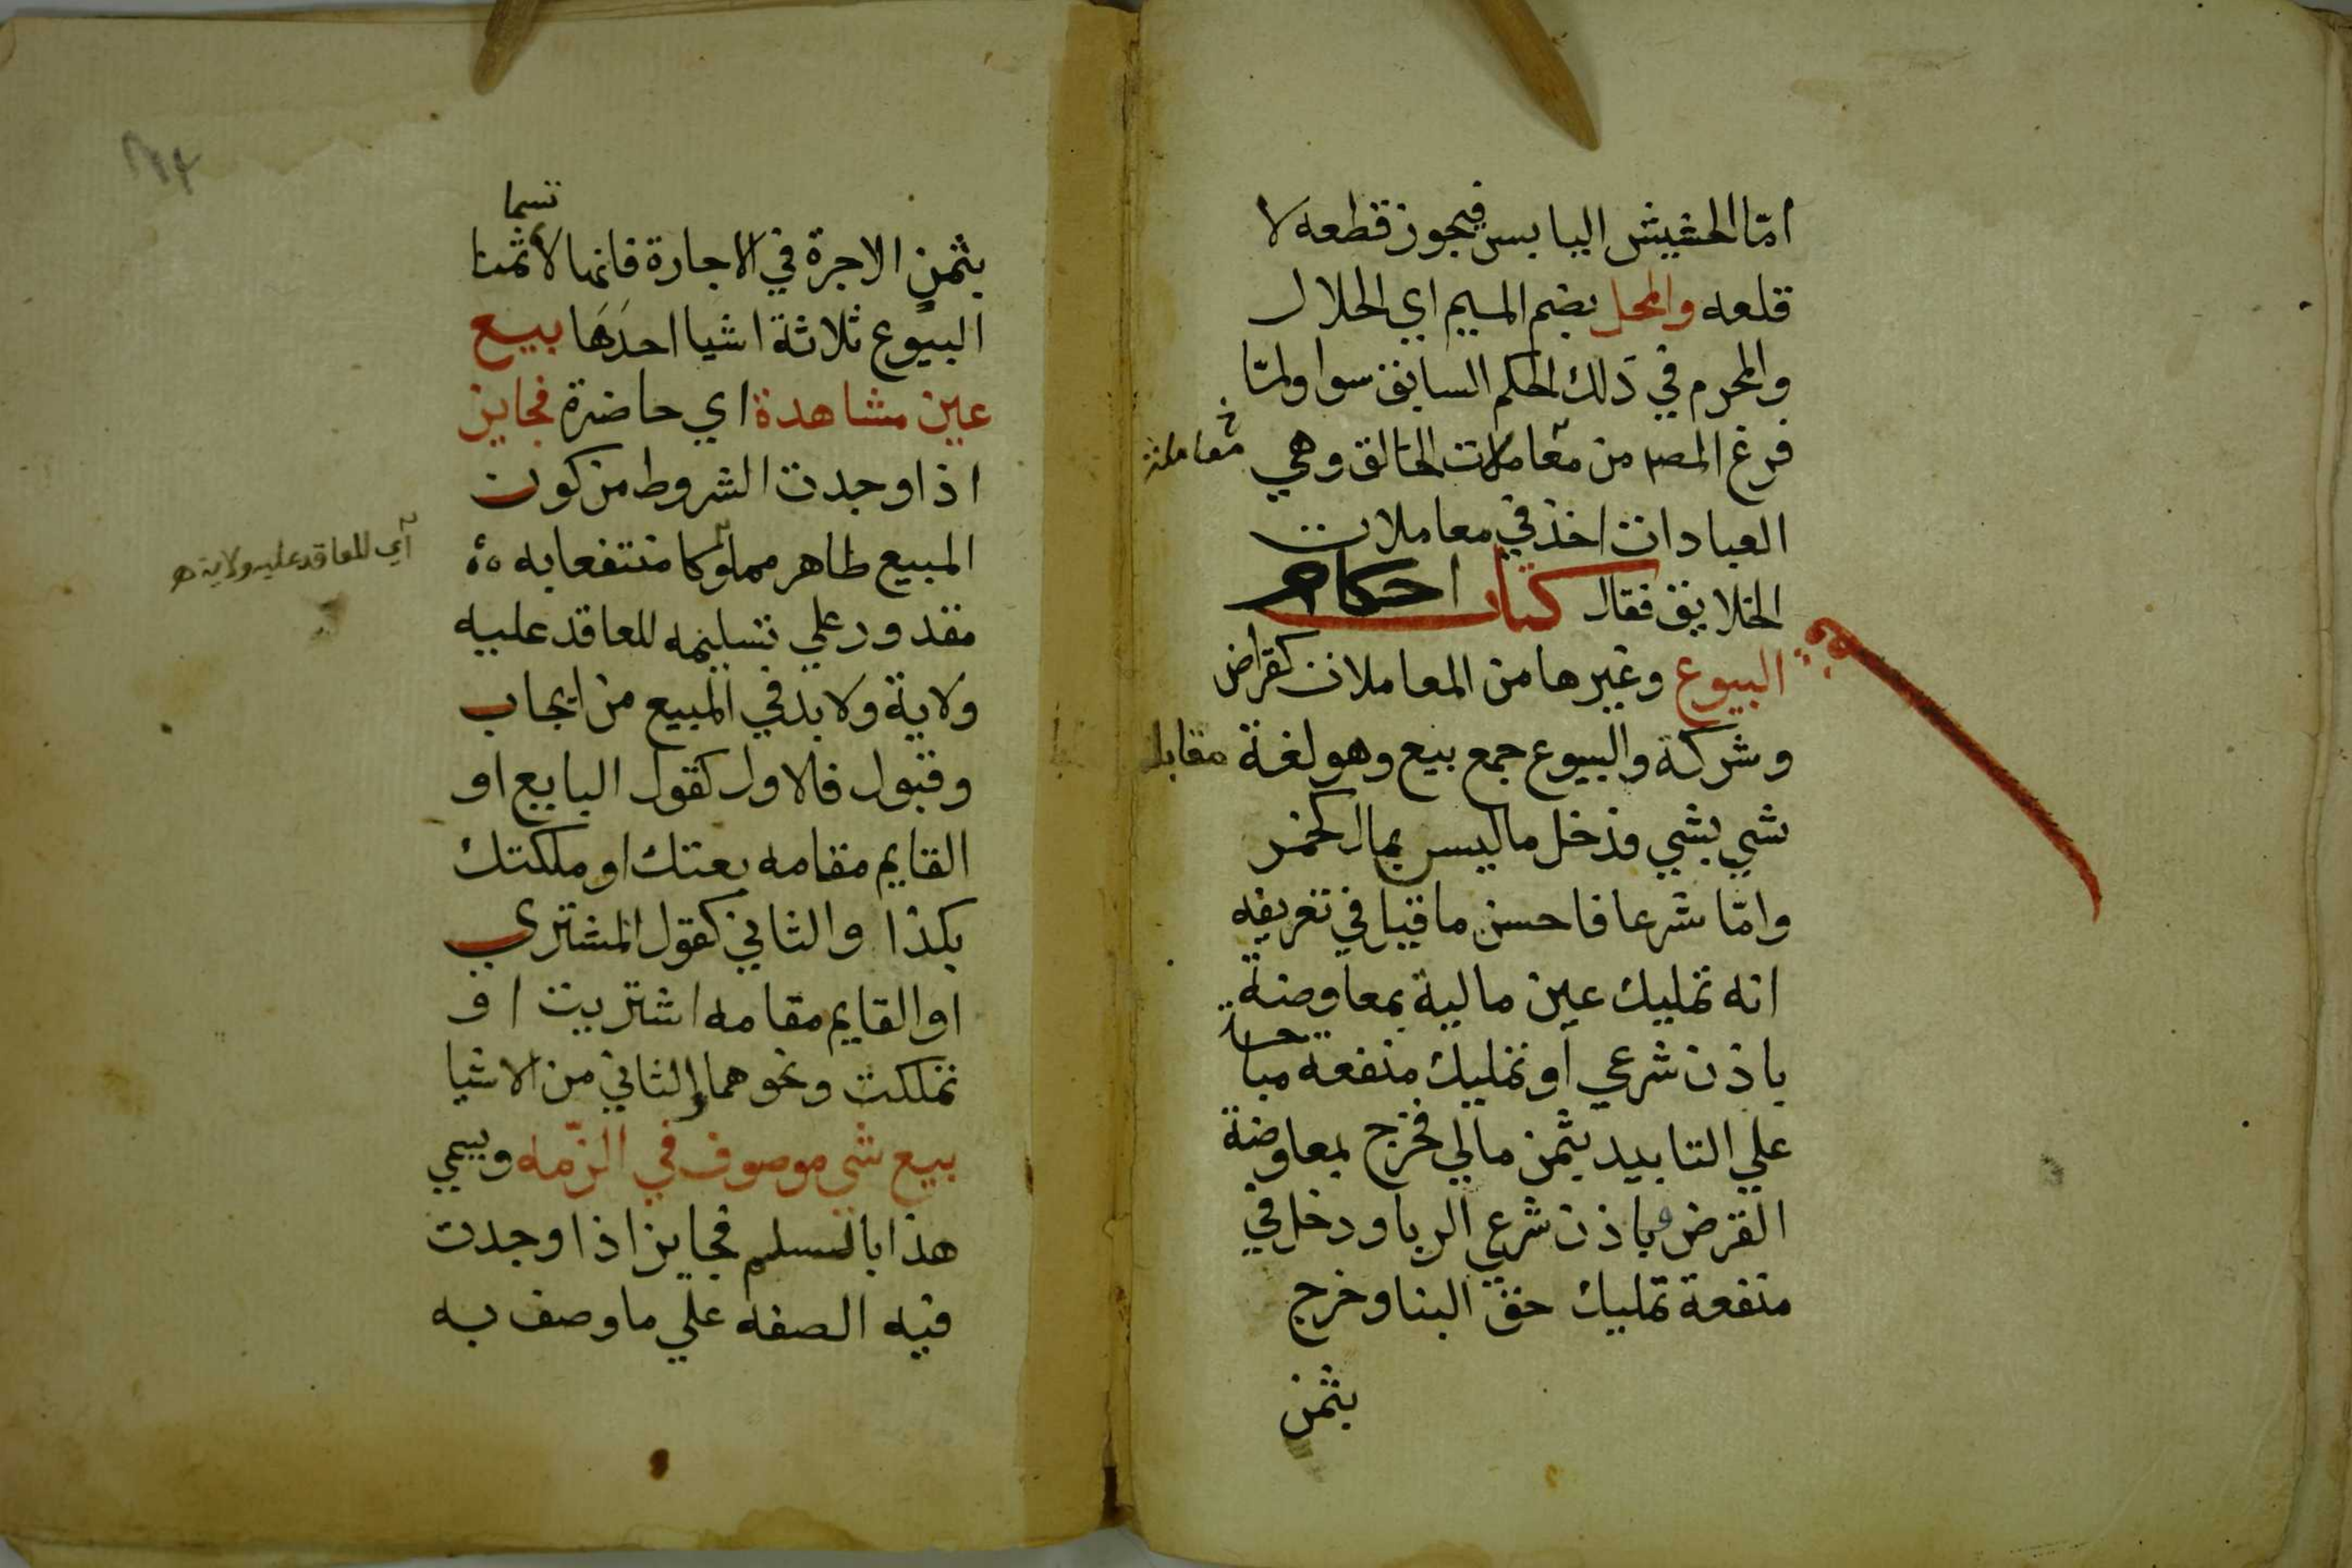 امّا الحشيش اليابس فيجوز قطعه لا
قلعه والمحل بضم الميم اي الحلال
والمحرم في ذلك الحكم السابق سوا ولمّا
فرغ المصر من معاملات الخالق وهي
معاملة
العبادات اخذ في معاملات
الخلايق فقال كتاب احكام
البيوع وغيرها من المعاملات كقراض
وشركة والبيوع جمع بيع وهو لغة مقابلة
شي بشي فدخل ما ليس بمال كخمر
وامّا شرعا فاحسن ما قيل في تعريفه
انه تمليك عين مالية بمعاوضة
باذن شرعي او تمليك منفعة مباحة
علي التابيد بثمن مالي فخرج بمعاوضة
القرض وباذن شرعي الربا ودخل في
منفعة تمليك حق البنا وخرج
بثمن
بثمن الاجرة في الاجارة فانها لا تسما ثمنا
البيوع ثلاثة اشيا احدها بيع
عين مشاهدة اي حاضرة فجايز
اذا وجدت الشروط من كون
المبيع طاهر مملوكا منتفعا به
مقدور علي تسليمه للعاقد عليه
ولاية ولا بد في المبيع من ايجاب
وقبول فالاول كقول البايع او
القايم مقامه بعتك او ملكتك
بكذا والثاني كقول المشتري
او القايم مقامه اشتريت او
تملكت ونحوهما والثاني من الاشيا
بيع شي موصوف في الذّمه ويسمي
هذا بالسلم فجايز اذا وجدت
فيه الصفه علي ما وصف به
أي للعاقد عليه ولاية